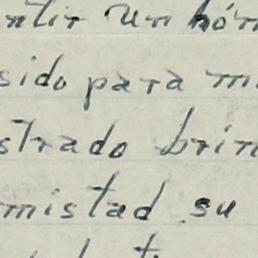 ntir un hón
sido para mi
strado brin
mistad su